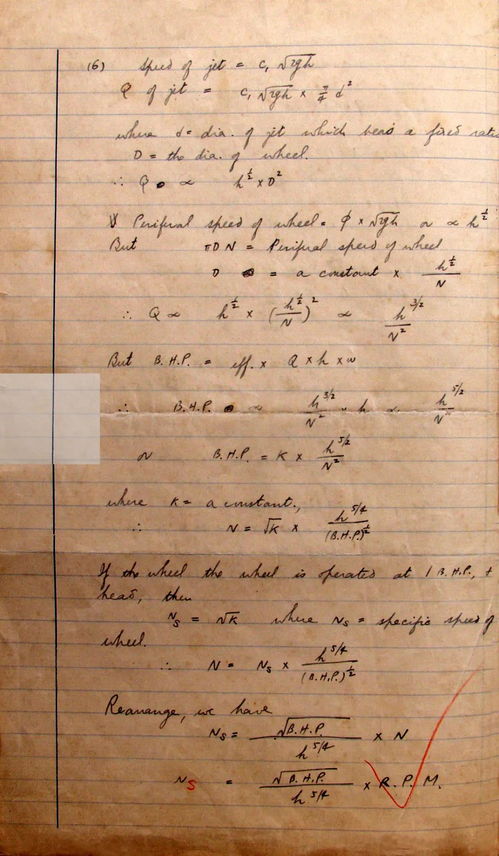 (6) Speed of jet = c, √2gh
Q of jet = c, √2gh × π/4 d²
where d = dia. of jet which bears a fixed ratio
D = the dia. of wheel.
∴ Q ∝ h^½ × D²
V Perifual speed of wheel = φ × √2gh or ∝ h^½
But πDN = Perifual speed of wheel
D = a constant × h^½/N
∴ Q ∝ h^½ × (h^½/N)² ∝ h^3/2/N²
But B.H.P. = eff. × Q × h × w
∴ B.H.P. ∝ h^3/2/N² × h ∝ h^5/2/N²
or B.H.P. = K × h^5/2/N²
where K = a constant.,
∴ N = √K × h^5/4/(B.H.P.)^½
If the wheel the wheel is operated at 1 B.H.P.,
head, then
Ns = √K where Ns = specific speed of
wheel.
∴ N = Ns × h^5/4/(B.H.P.)^½
Rearrange, we have
Ns = √B.H.P./h^5/4 × N
Ns = √B.H.P./h^5/4 × R.P.M.